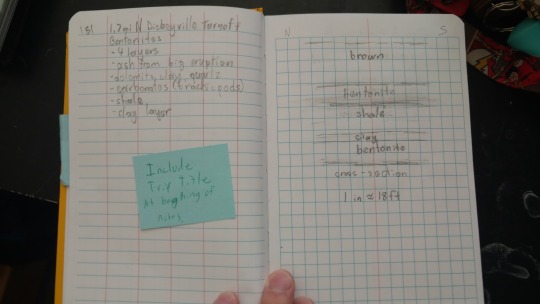 1.7 mi N Turnoff
Bentonites
- 4 layers
- ash from big eruption
- dolomite, clay, quartz
- carbonates (brachiopods)
- shale
- clay layer
Include
Trip title
At beginning of
notes
N S
brown
Bentonite
shale
bentonite
cross-section
1 in ≈ 18 ft